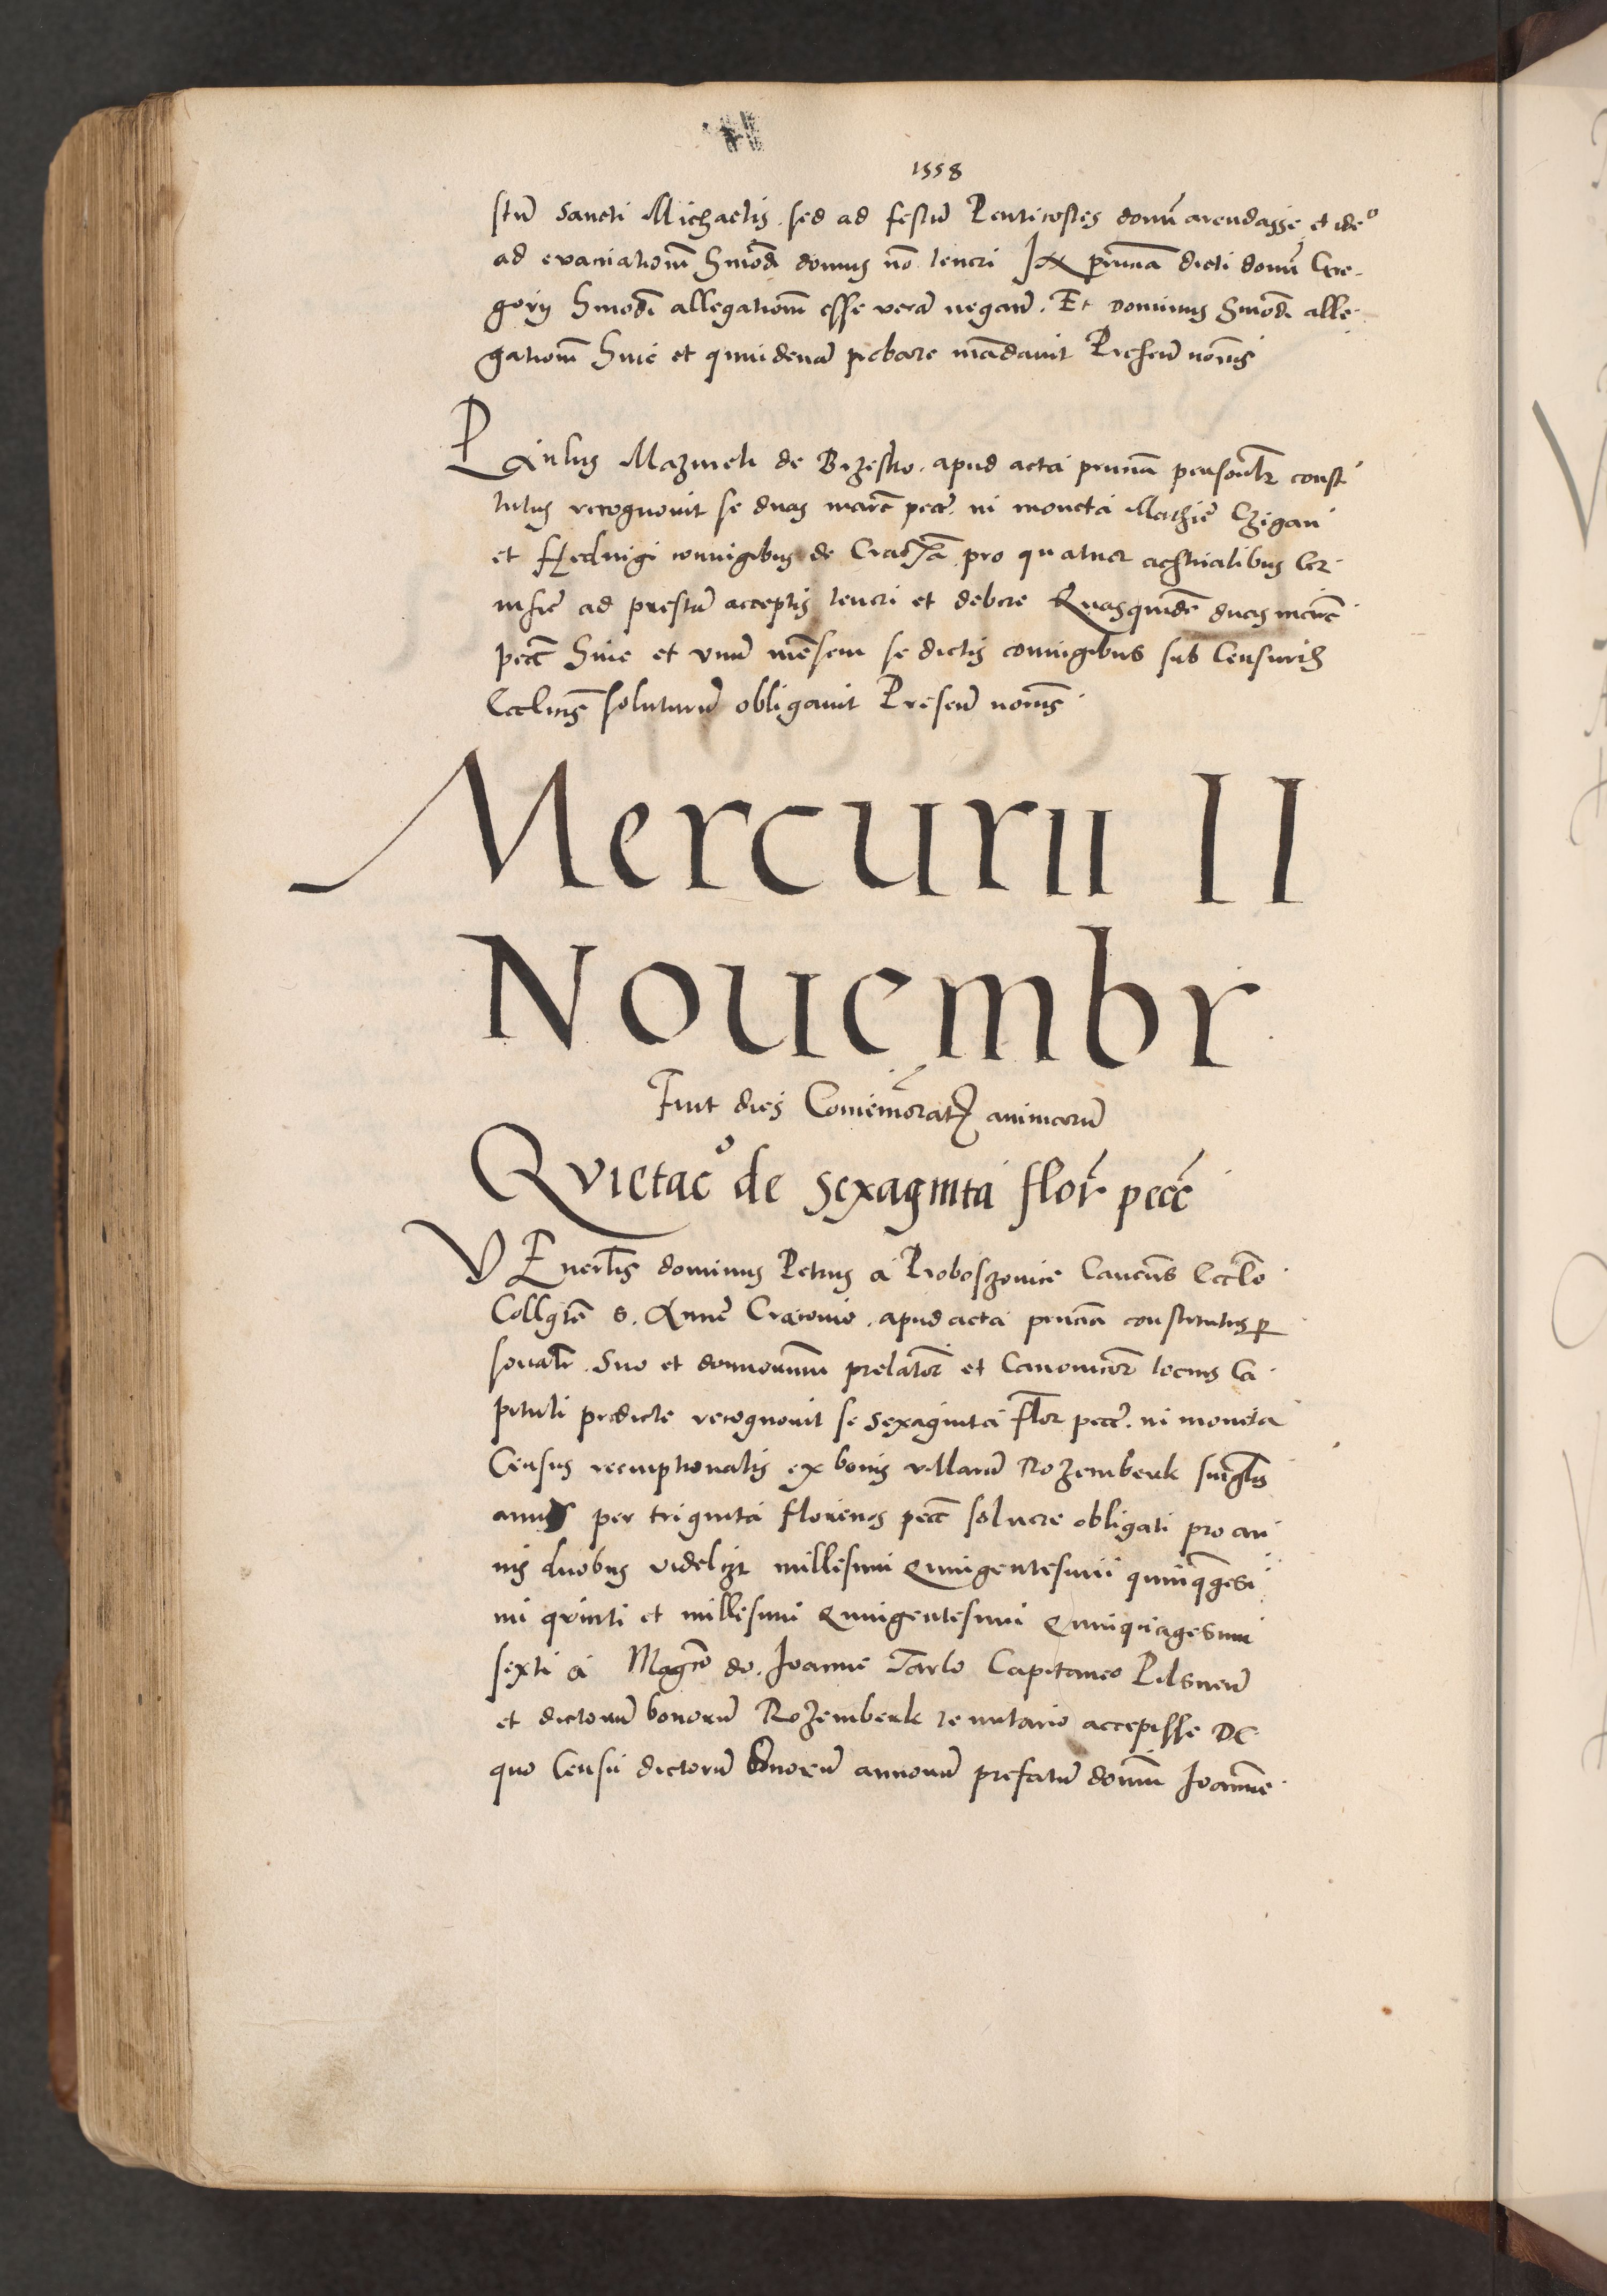 1558
stũ Sancti Michaelis. sed ad festũ Penticostes domũ arendasse, et ideo
ad evacuationẽ hmõdi domus nõ teneri In pñtia dicti domĩ Gre-
gorij hmõdi allegationẽ esse verã negan̄. Et dominus hmõdi alle-
gationẽ hinc et quindenã probare mãdavit Presen̄
Paulus de Brzesko. apud acta pñtia personl̃r consti
tutus recognovit se duas marc̃ pecc̃. in moneta Mathie Czigan
et Hedvigi coniugibus de Crac̃ia pro quatuor aestivalibus
ad prestũ acceptis teneri et debere Quasquidẽ duas marc̃
pecc̃ hinc et vnũ mẽsem se dictis coniugibus sub Censuris
Eccl̃cis soluturũ obligavit Presen̄
Mercurii II
Nouembr
Fuit dies Comẽmorat̃ animarũ
Qvietac̃o de sexaginta flor̃ pecc̃
VEnerl̃is dominus Petrus a Proboszovice Canon̄s Eccl̃e
Collgt̃e S. Anne Cracovie. apud acta pñtia constitutus per
sonalr̃. Suo et dominorum prelator̃ et Canonicor̃ tocius Ca
pituli predicte recognovit se sexaginta Flor pecc̃. in moneta
Census reemptionalis ex bonis villarũ Rozemberk singl̃is
annis per triginta florenos pecc̃ soluere obligati pro an
nis duobus videlizt millesimi Quingentesimi quinq̃gesi
mi qvinti et millesimi Quingentesimi Quinquagesimi
sexti a Magc̃o do. Joanne Tarlo Capitaneo Pilsnen̄
et dictorũ bonorũ Rozemberk tenutario accepisse De
quo Censu dictorũ bonorũ annorũ prefatũ domĩm Joannẽ